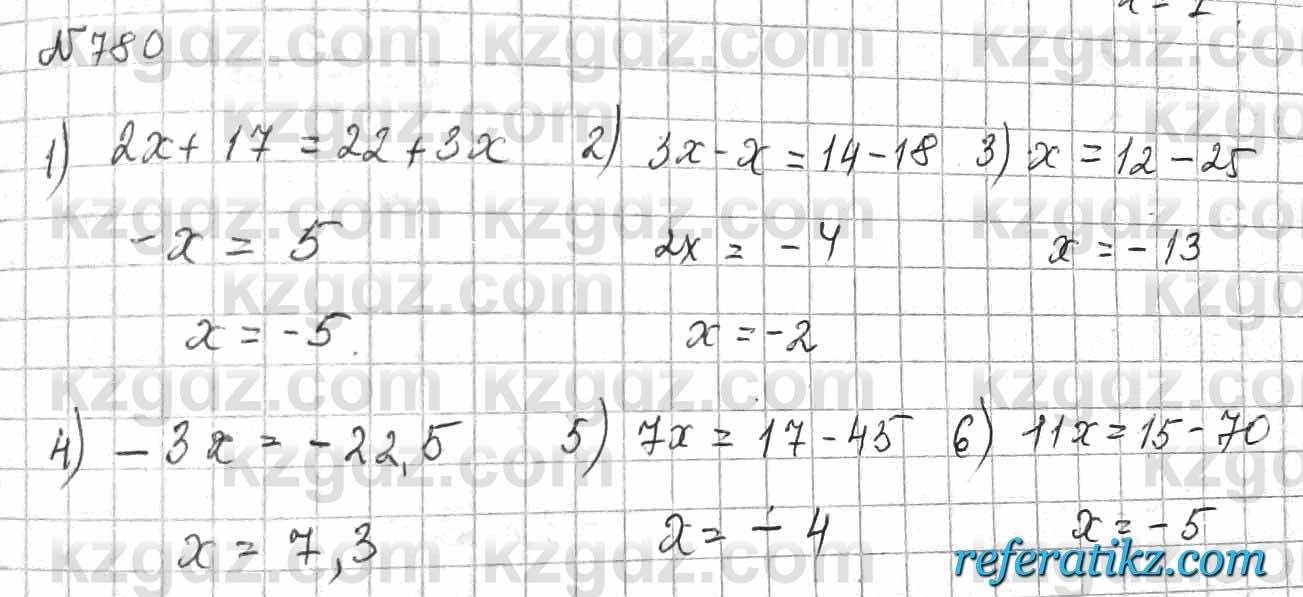 №780
1) 2x + 17 = 22 + 3x 2) 3x - x = 14 - 18 3) x = 12 - 25
-x = 5 2x = -4 x = -13
x = -5. x = -2
4) -3x = -22,5 5) 7x = 17 - 45 6) 11x = 15 - 70
x = 7,3 x = -4 x = -5
referatikz.com
kzgdz.com